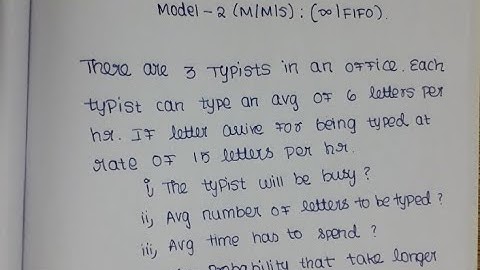 Model-2 (M/M/S) : (∞/FIFO).
There are 3 Typists in an office. Each
typist can type an avg of 6 letters per
hr. If letter arive for being typed at
rate of 15 letters per hr.
i, The typist will be busy?
ii, Avg number of letters to be typed?
iii, Avg time has to spend?
Probability that take longer